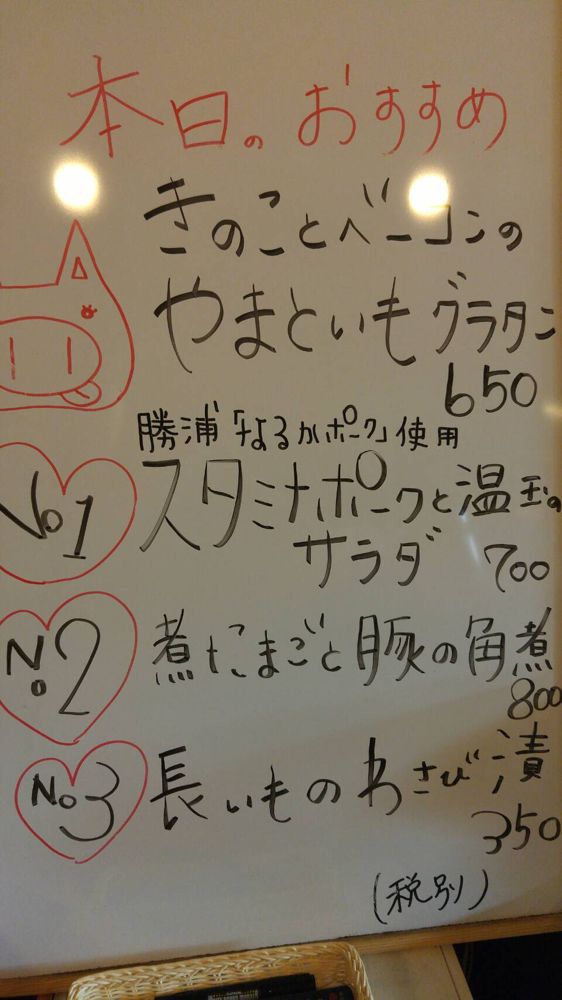 本日のおすすめ
きのことベーコンの
やまといもグラタン
650
勝浦「なるかポーク」使用
No1
スタミナポークと温玉の
サラダ 700
No2
煮たまごと豚の角煮
800
No3
長いものわさび漬
350
(税別)